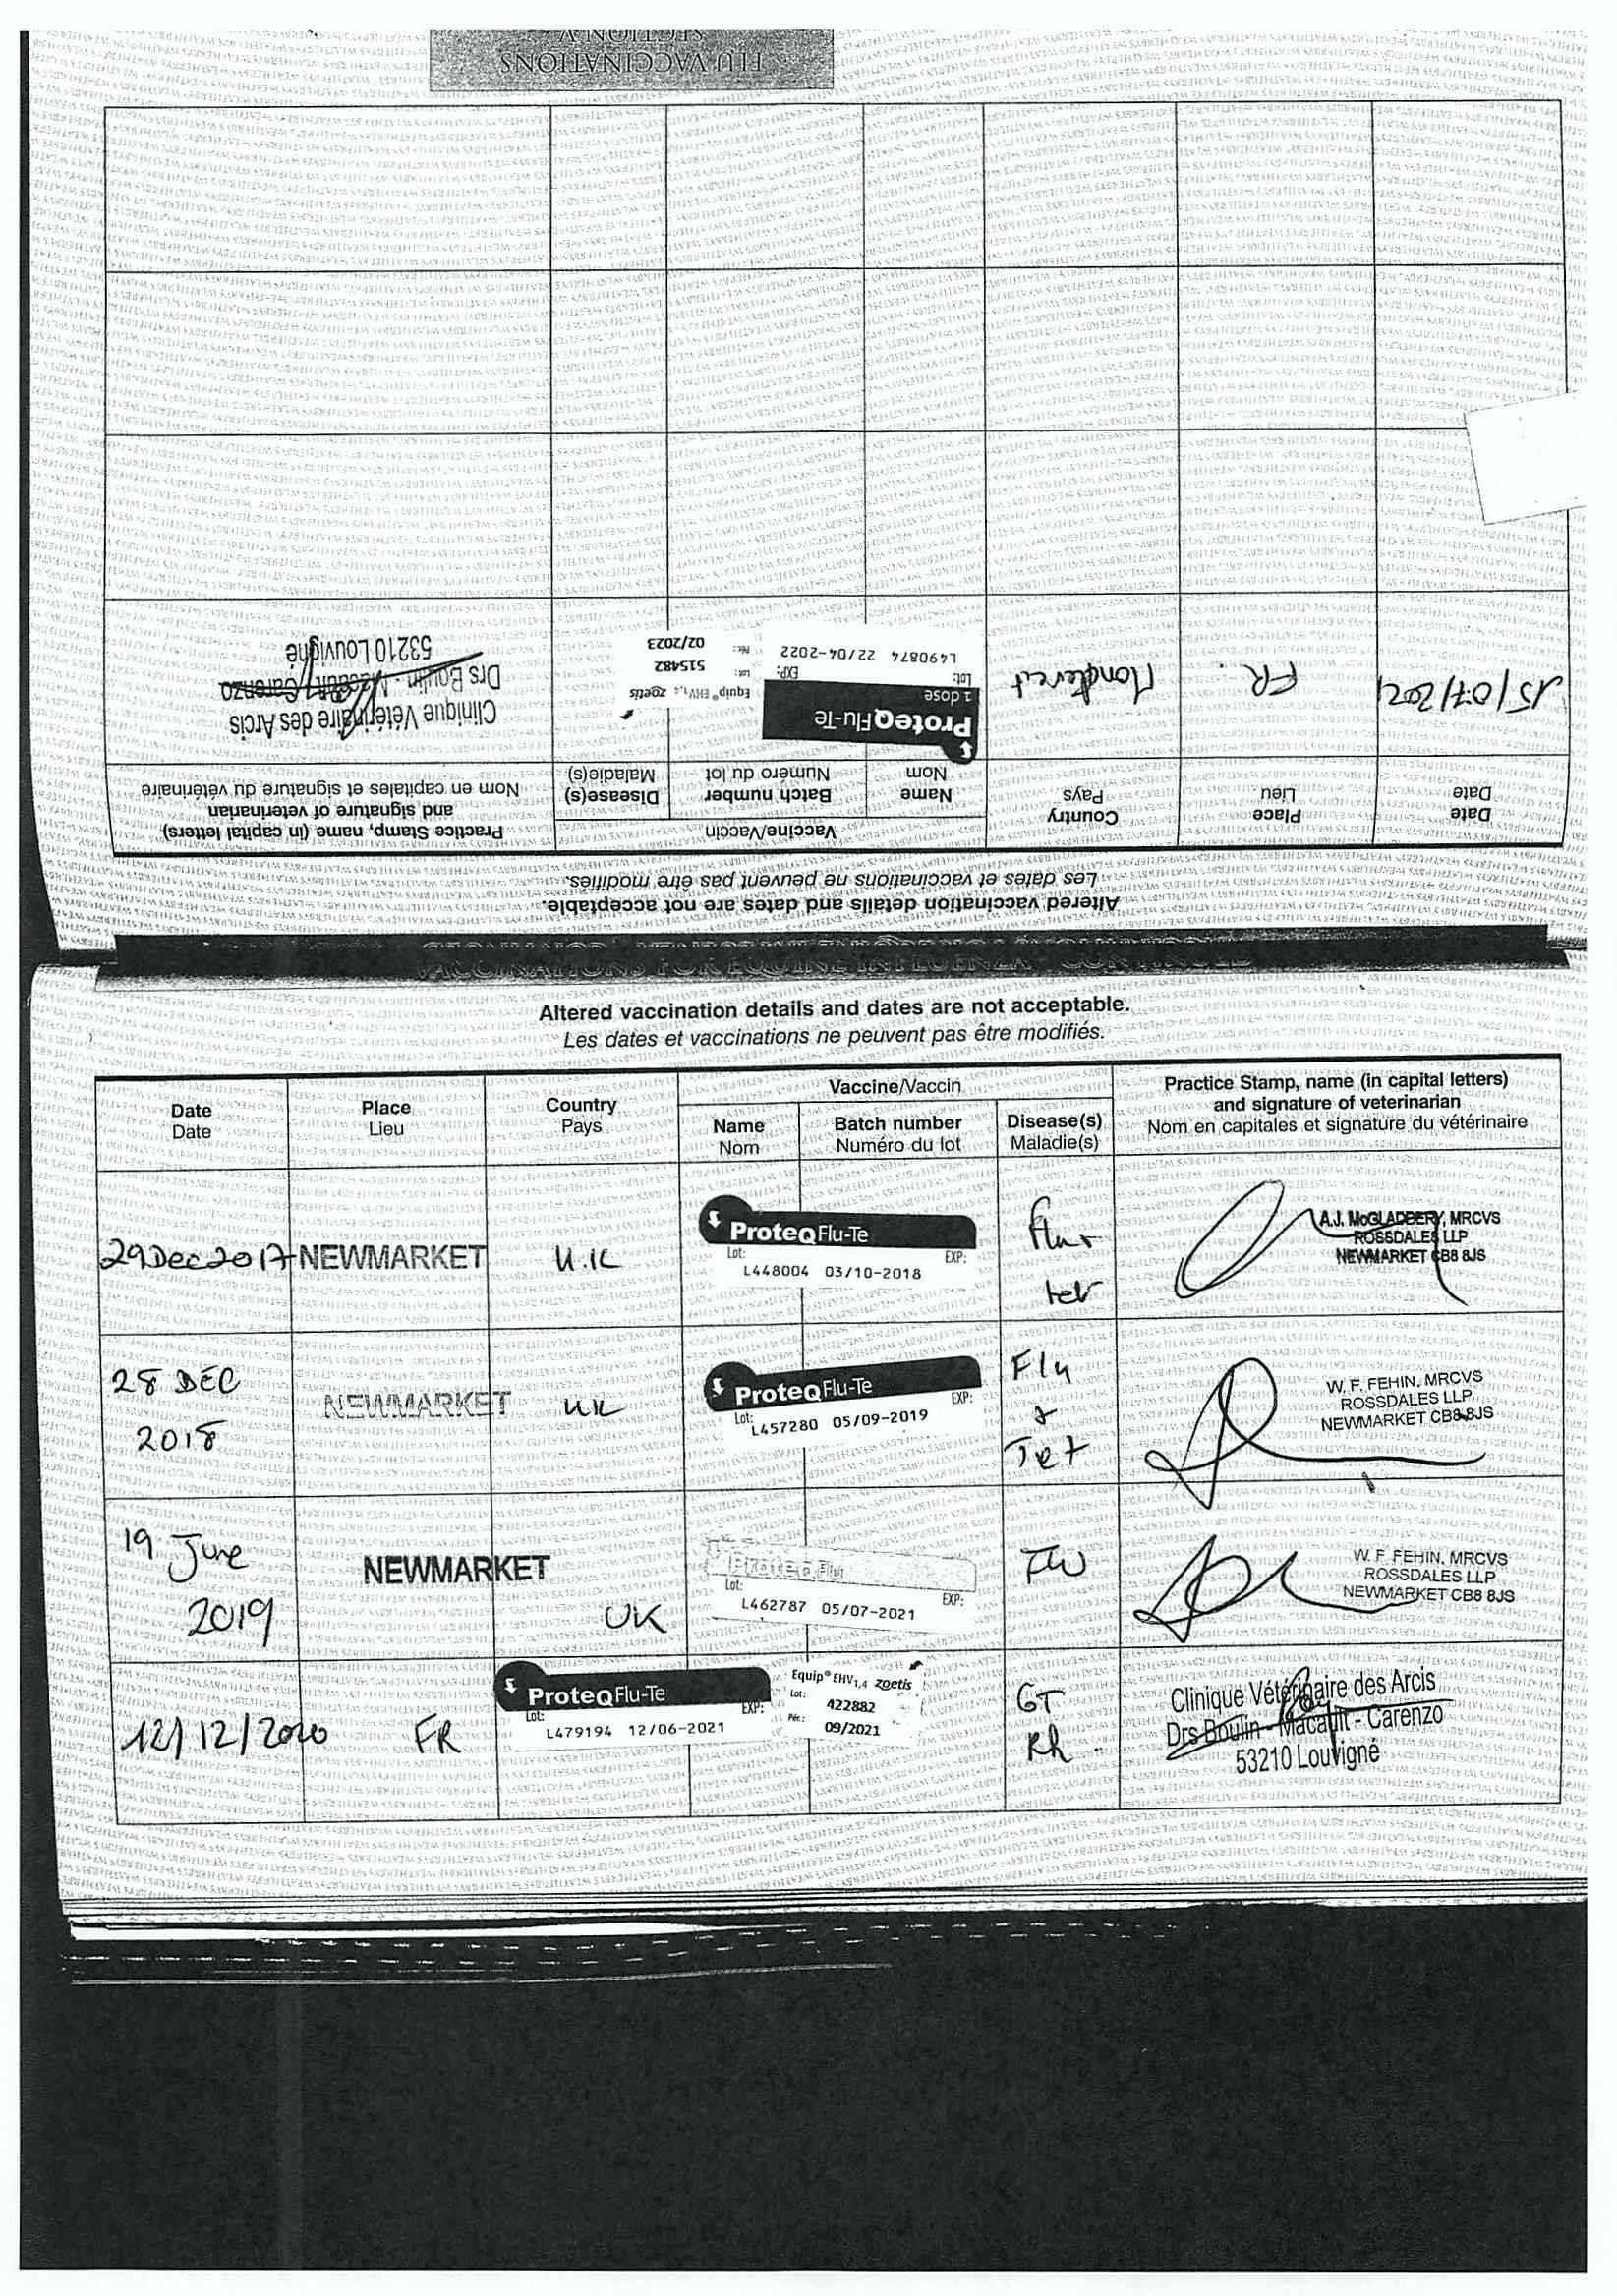 FLU VACCINATIONS
SECTION A
Altered vaccination details and dates are not acceptable.
Les dates et vaccinations ne peuvent pas être modifiés.
Date
Date
Place
Lieu
Country
Pays
Vaccine/Vaccin
Name
Nom
Batch number
Numéro du lot
Disease(s)
Maladie(s)
Practice Stamp, name (in capital letters)
and signature of veterinarian
Nom en capitales et signature du vétérinaire
15/07/2021
FR.
ProteqFlu-Te
1 dose
Lot: EXP:
L490874 22/04-2022
Equip® EHV1,4 zoetis
Lot: 515482
Pér.: 02/2023
Clinique Vétérinaire des Arcis
Drs Boulin - Macault - Carenzo
53210 Louvigné
VACCINATIONS FOR EQUINE INFLUENZA - CONTINUED
Altered vaccination details and dates are not acceptable.
Les dates et vaccinations ne peuvent pas être modifiés.
Date
Date
Place
Lieu
Country
Pays
Vaccine/Vaccin
Name
Nom
Batch number
Numéro du lot
Disease(s)
Maladie(s)
Practice Stamp, name (in capital letters)
and signature of veterinarian
Nom en capitales et signature du vétérinaire
29 Dec 2017
NEWMARKET
U.K
ProteqFlu-Te
Lot: EXP:
L448004 03/10-2018
Flu +
tet
A.J. McGLADDERY, MRCVS
ROSSDALES LLP
NEWMARKET CB8 8JS
28 DEC
2018
NEWMARKET
UK
ProteqFlu-Te
Lot: EXP:
L457280 05/09-2019
Flu
&
Tet
W. F. FEHIN, MRCVS
ROSSDALES LLP
NEWMARKET CB8 8JS
19 June
2019
NEWMARKET
UK
ProteqFlu
Lot: EXP:
L462787 05/07-2021
Flu
W. F. FEHIN, MRCVS
ROSSDALES LLP
NEWMARKET CB8 8JS
12/12/2020
FR
ProteqFlu-Te
Lot: EXP:
L479194 12/06-2021
Equip® EHV1,4 zoetis
Lot: 422882
Pér.: 09/2021
GT
Rh
Clinique Vétérinaire des Arcis
Drs Boulin - Macault - Carenzo
53210 Louvigné